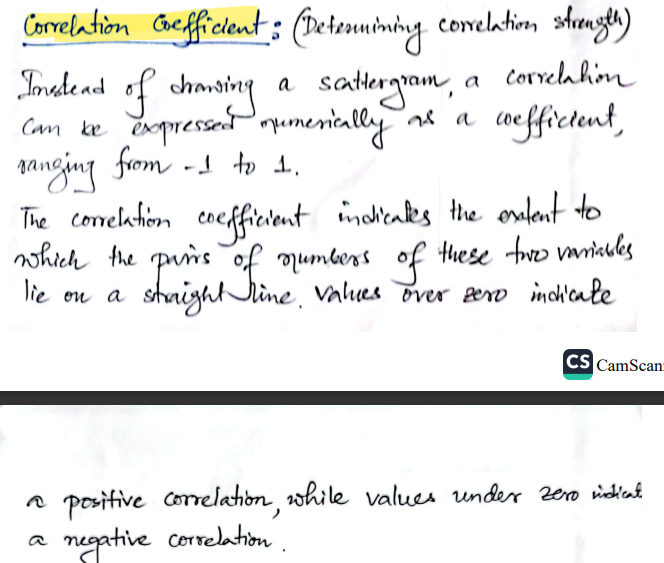 Correlation Coefficient: (Determining correlation strength)
Instead of drawing a scattergram, a correlation
can be expressed numerically as a coefficient,
ranging from -1 to 1.
The correlation coefficient indicates the extent to
which the pairs of numbers of these two variables
lie on a straight line. Values over zero indicate
CS CamScan
a positive correlation, while values under zero indicat
a negative correlation.